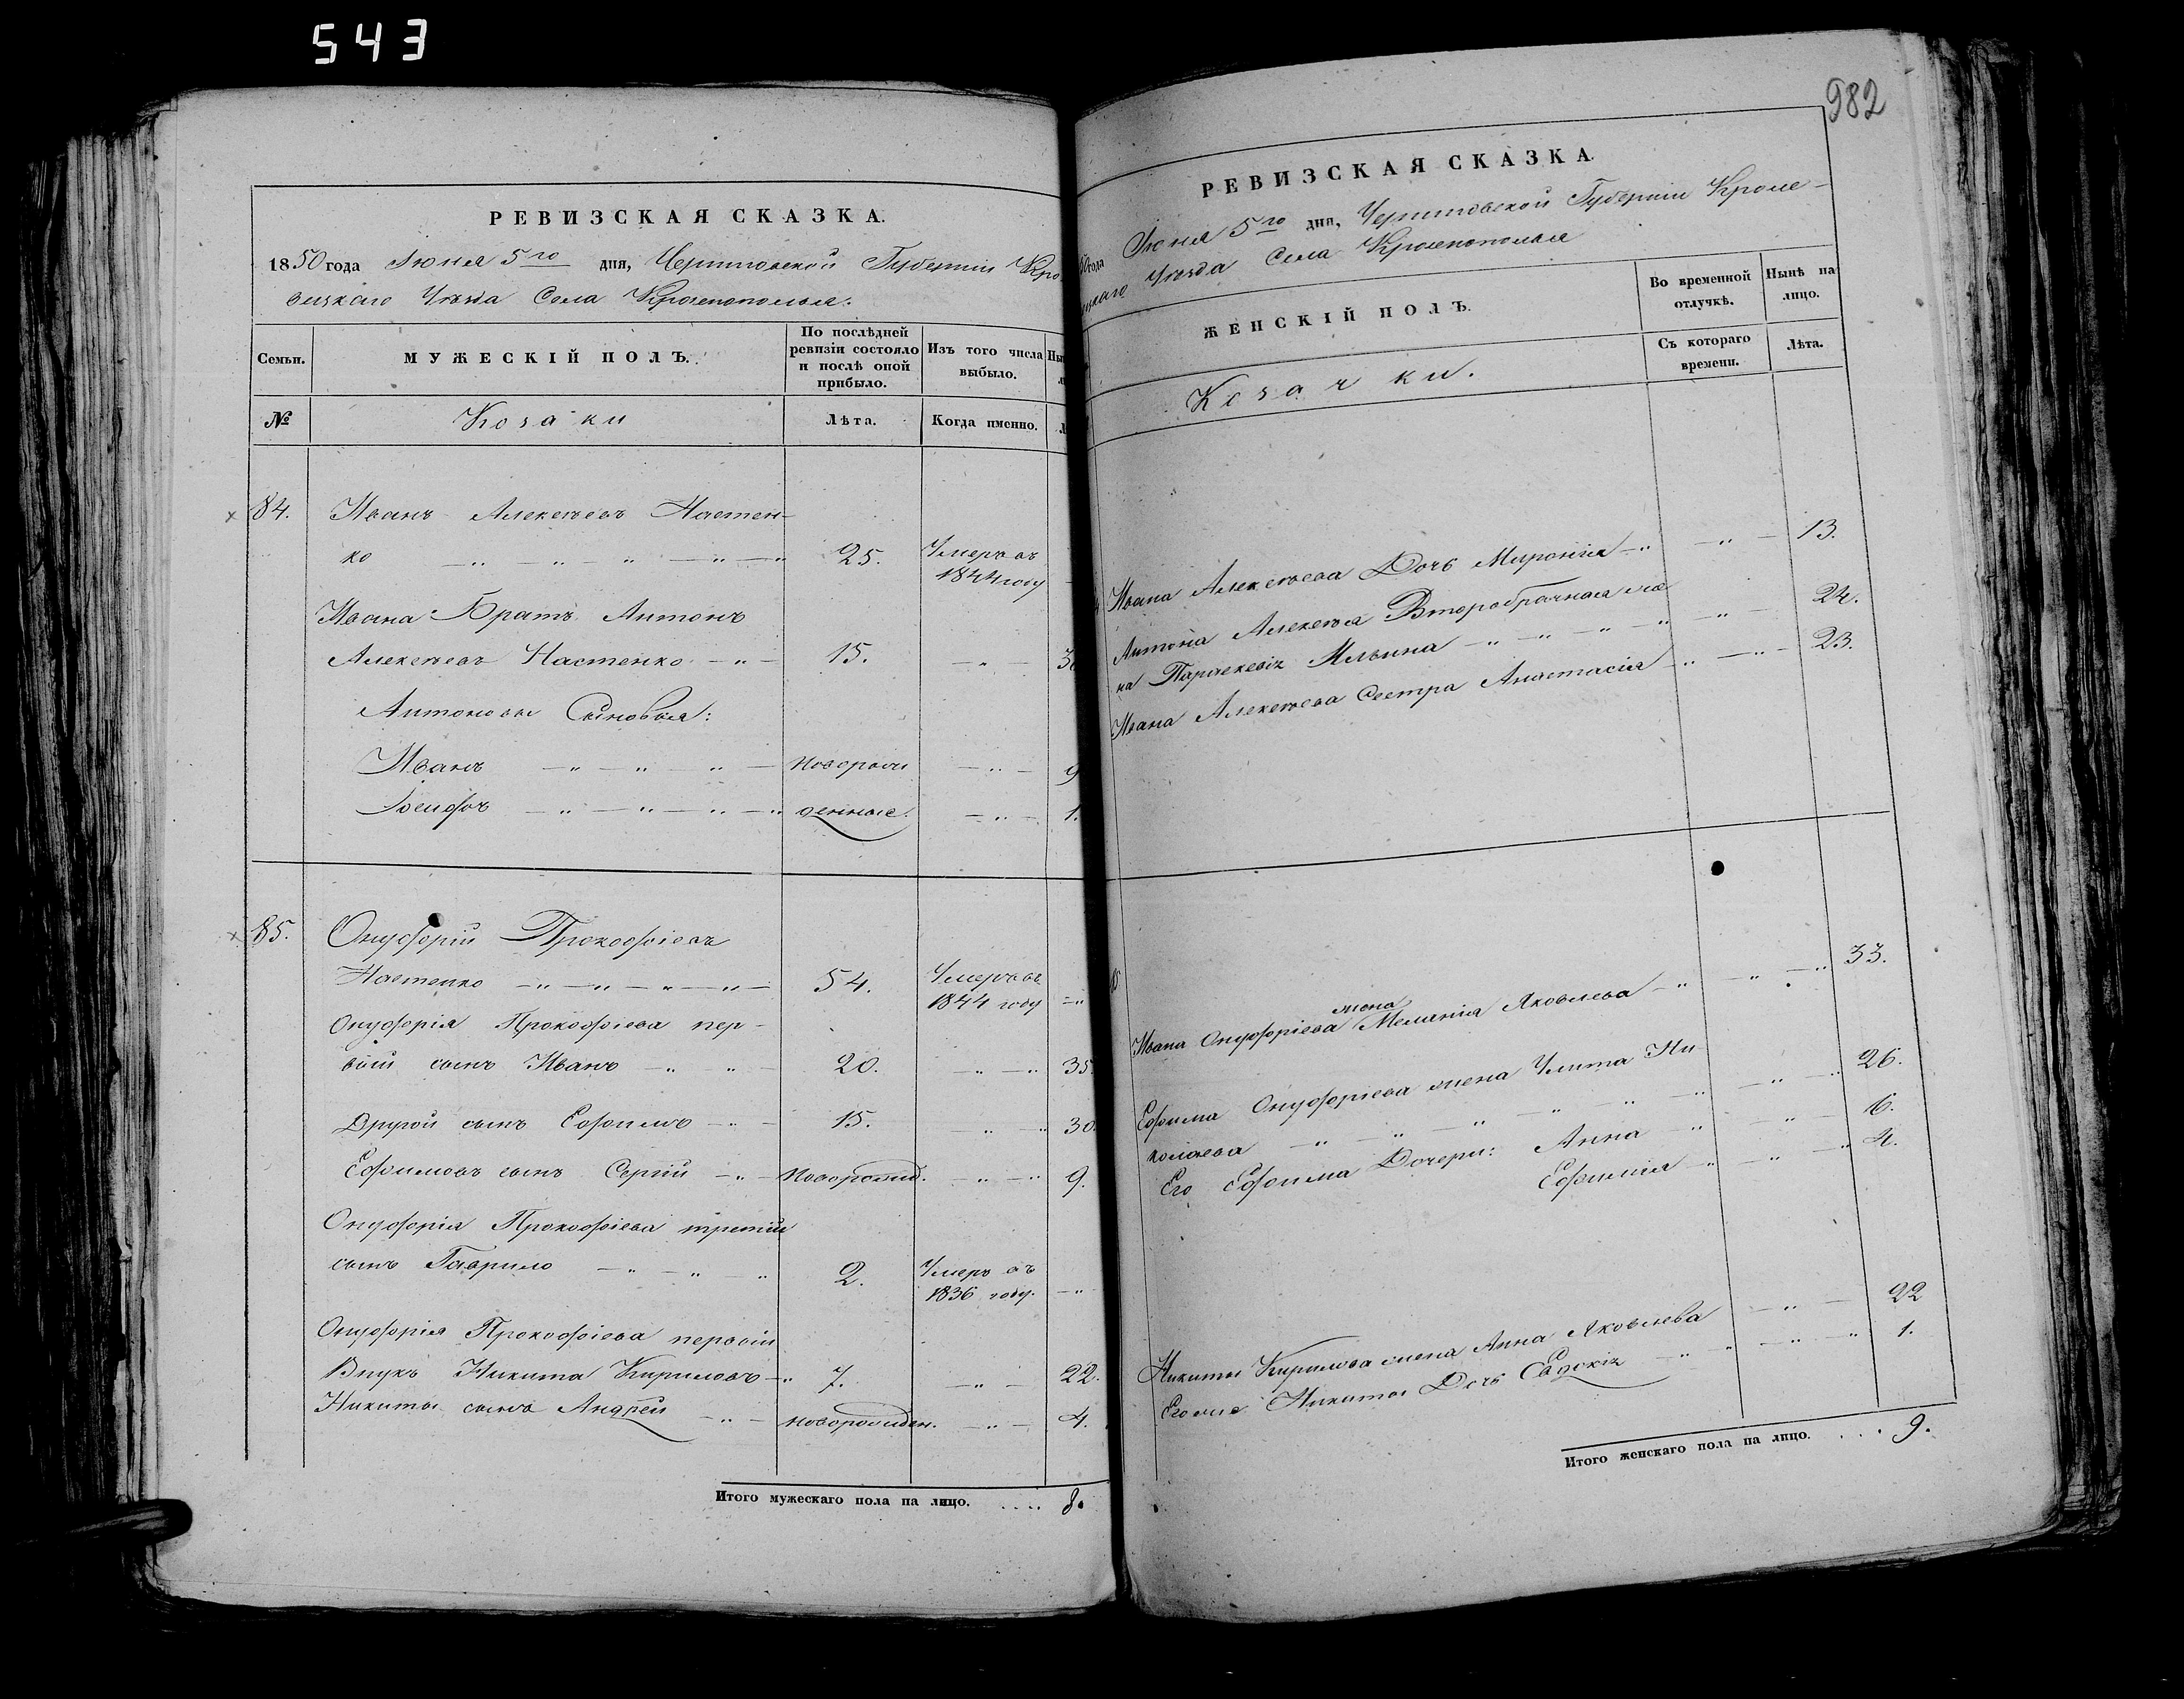 543
982
РЕВИЗСКАЯ СКАЗКА.
1850 года Іюня 5го дня, Черниговской Губерніи Кро
вецкаго Уѣзда Села
Семьи.
МУЖЕСКІЙ ПОЛЪ.
По послѣдней ревизіи состояло и послѣ оной прибыло.
Изъ того числа выбыло.
№
Козаки
Лѣта.
Когда именно.
84. Иванъ Алексѣевъ Настен-
ко 25. Умеръ въ
1844 году
Ивана Братъ Антонъ
Алексѣевъ Настенко 15.
Антоновы Сыновья:
Иванъ новорож 9
Іосифъ денные. 1.
85. Онуфрій Прокофіевъ
Настенко 54. Умеръ въ
1844 году
Онуфрія Прокофіева пер-
вый сынъ Иванъ 20. 35.
Другой сынъ Ефимъ 15. 30.
Ефимовъ сынъ Сергій Новорожд. 9.
Онуфрія Прокофіева третій
сынъ Гаврило 2. Умеръ въ
1836 году.
Онуфрія Прокофіева первый
Внукъ Никита Кириловъ 7. 22.
Никиты сынъ Андрей новорожден. 4.
Итого мужескаго пола на лицо. .... 8.
РЕВИЗСКАЯ СКАЗКА.
года Іюня 5го дня, Черниговской Губерніи Кроле-
вецкаго Уѣзда Села
ЖЕНСКІЙ ПОЛЪ.
Во временной отлучкѣ.
Нынѣ на лицо.
Козачки.
Съ котораго времени.
Лѣта.
Ивана Алексѣева Дочь 13.
Антона Алексѣя Второбрачная же
на Параскевія Ильина 24.
Ивана Алексѣева Сестра Анастасія 23.
жена
Ивана Онуфріева Меланія Яковлева 33.
Ефима Онуфріева жена Улита Ни-
колаева 26.
Его Ефима Дочери: Анна 6.
Ефимія 4.
Никиты Кирилова жена Анна Яковлева 22
Его же Никиты Дочь Евдокія 1.
Итого женскаго пола на лицо. .... 9.